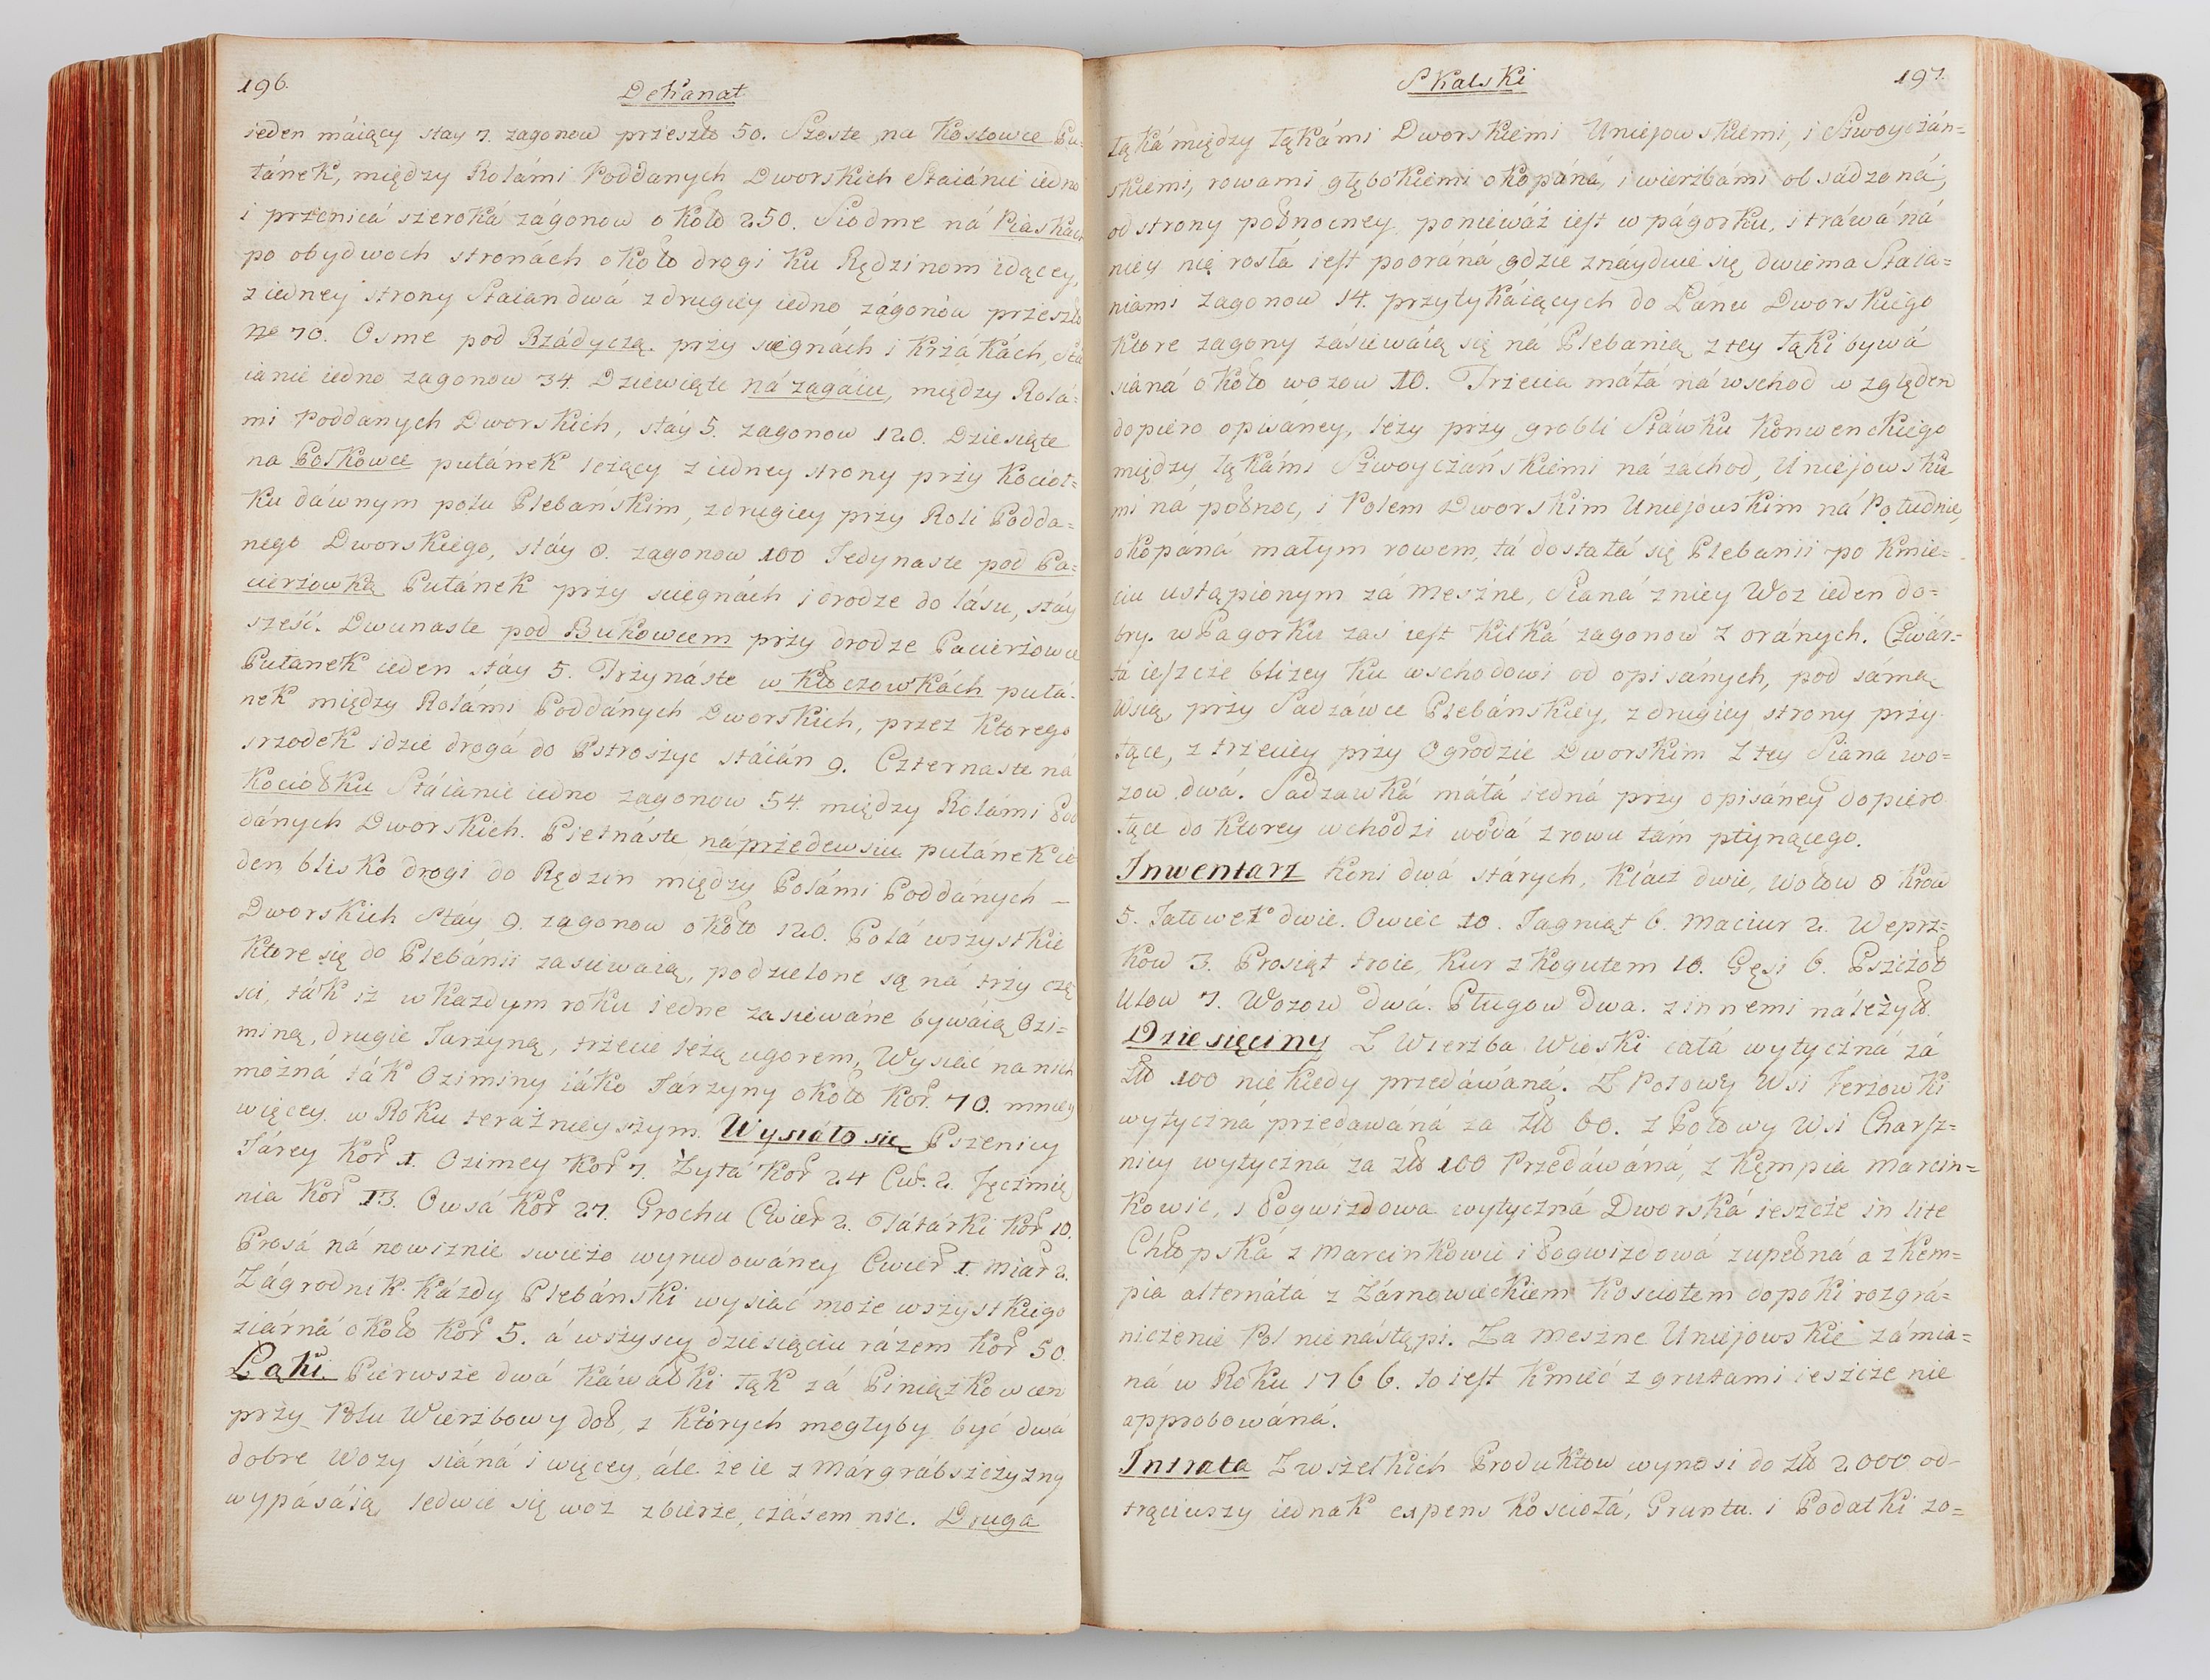 196.
Dekanat
ieden máiący stay 7. zagonow przeszło 50. Szoste na Kosłowce Pu-
łánek, między Rolámi Poddanych Dworskich Staiánie iedno
i przenicá szeroká zágonow około 250. Siodme ná Piaskach
po obydwoch stronách około drogi ku Rędzinom idącey,
z iedney strony Staian dwá z drugiey iedno zágonów przeszło
No 70. Osme pod Rządyczą przy sciegnách i Krzákách, Sta
ianie iedno zagonow 34. Dziewiąte ná zagáiu, między Rolá=
mi Poddanych Dworskich, stáy 5. zagonow 120. Dziesiąte
na Polkowce pułánek leżący z iedney strony przy Kocioł=
ku dáwnym polu Plebańskim, z drugiey przy Roli Podda=
nego Dworskiego, stáy 8. zagonow 100 Jedynaste pod Pa=
cierzowką Pułánek przy sciegnách i drodze do lásu, stáy
sześć. Dwunaste pod Bukowcem przy drodze Pacierzowce
Pułanek ieden stáy 5. Trzynáste w Kłoczowkách pułá-
nek między Rolámi Poddánych Dworskich, przez ktorego
srzodek idzie drogá do Pstroszyc stáián 9. Czternaste ná
Kociołku Stáianie iedno zagonow 54 między Rolámi Pod
dánych Dworskich. Pietnáste náprzedewsiu pułánek ie
den blisko drogi do Rędzin między Polámi Poddanych —
Dworskich Stáy 9. zagonow około 120. Polá wszystkie
ktore się do Plebánii zasiewaią, podzielone są ná trzy czę
sci, ták iż w każdym roku iedne zasiewáne bywáią Ozi=
miną, drugie Jarzyną, trzecie leżą ugorem, Wysiać na nich
możná ták Oziminy iáko Járzyny około Koř. 70. mniey
więcey. w Roku teraźnieyszym. Wysiáło się Pszenicy
Járey Koř 1. Ozimey Koř 7. Żytá Koř 24 Cw. 2. Jęczmie
nia Koř 13. Owsá Koř 27. Grochu Cwieř 2. Tátárki Koř 10.
Prosá ná nowiznie swieżo wyrudowáney Cwieř 1. miař 2.
Zágrodnik káżdy Plebánski wysiać może wszystkiego
ziárná około Koř 5. á wszyscy dziesiąciu rázem Koř 50.
Łąki. Pierwsze dwá káwałki łąk zá Piniążkowcem
przy Polu Wierzbowy doł, z których mogłyby być dwá
dobre Wozy siáná i więcey, ále że ie z Márgrábszczyzny
wypásáią, ledwie się woz zbierze, czásem nic. Druga
Skalski
197.
łąká między łąkámi Dworskiemi Uniejowskiemi, i Sżwoyczán=
skiemi, rowami głębokiemi okopáná, i wierzbámi obsádzoná,
od strony połnocney, poniewáż iest w págorku, i trawá ná
niey nię rosłá iest pooráná gdzie znáyduie się dwiema Staia=
niami zagonow 14. przytykáiących do Łánu Dworskiego
ktore zagony zásiewáią się ná Plebánią z tey łąki bywá
sianá około wozow 10. Trzecia máłá ná wschod względem
dopiero opisáney, leży przy grobli Stáwku Konwenckiego
między łąkámi Sżwoyczáńskiemi ná zachod, Uniejowskie
mi ná połnoc, i Polem Dworskim Uniejowskim ná Południe,
okopáná małym rowem, tá dostałá się Plebanii po kmie=
ciu ustąpionym zá meszne, Sianá z niey Woz ieden do=
bry. w Pagorku zas iest kilká zagonow zoránych. Czwár=
tá ieszcze bliżey ku wschodowi od opisánych, pod sámą
Wsią, przy Sadzáwce Plebánskiey, z drugiey strony przy
łące, z trzeciey przy Ogrodzie Dworskim Z tey Siana wo=
zow dwá. Sadzawká máłá iedná przy opisáney dopiero
łące do ktorey wchodzi wodá z rowu tám płynącego.
Inwentarz Koni dwá stárych, Klácz dwie, Wołow 8 Krow
5. Jałowek dwie. Owiec 10. Jagniąt 6. Maciur 2. Weprz=
kow 3. Prosiąt troie, Kur z Kogutem 10. Gęsi 6. Pszczoł
Ulow 7. Wozow dwá. Pługow dwa. z innemi náleżyt.
Dziesięciny Z Wierzba Wioski cáłá wytyczná zá
Zło 100 niekiedy przedáwáná. Z Połowy Wsi Jerzowki
wytyczná przedawáná za Zło 60. z Połowy Wsi Charsz=
nicy wytyczna za zło 100 Przedáwáná, z Kępia Marcin=
kowic, i Pogwizdowa wytyczná Dworská ieszcze in lite
Chłopská z Marcinkowic i Pogwizdowá zupełná a z Kem=
pia alternátá z Zárnowieckiem Kosciołem dopoki rozgrá=
niczenie Pol nie nástąpi. Za Meszne Uniejowskie zámia=
ná w Roku 1766. to iest Kmieć z gruntami ieszcze nie
approbowáná.
Intrata Z wszelkich Produktow wynosi do Zło 2000 od-
trąciwszy iednak expens Kosciołá, Gruntu. i Podatki zo=